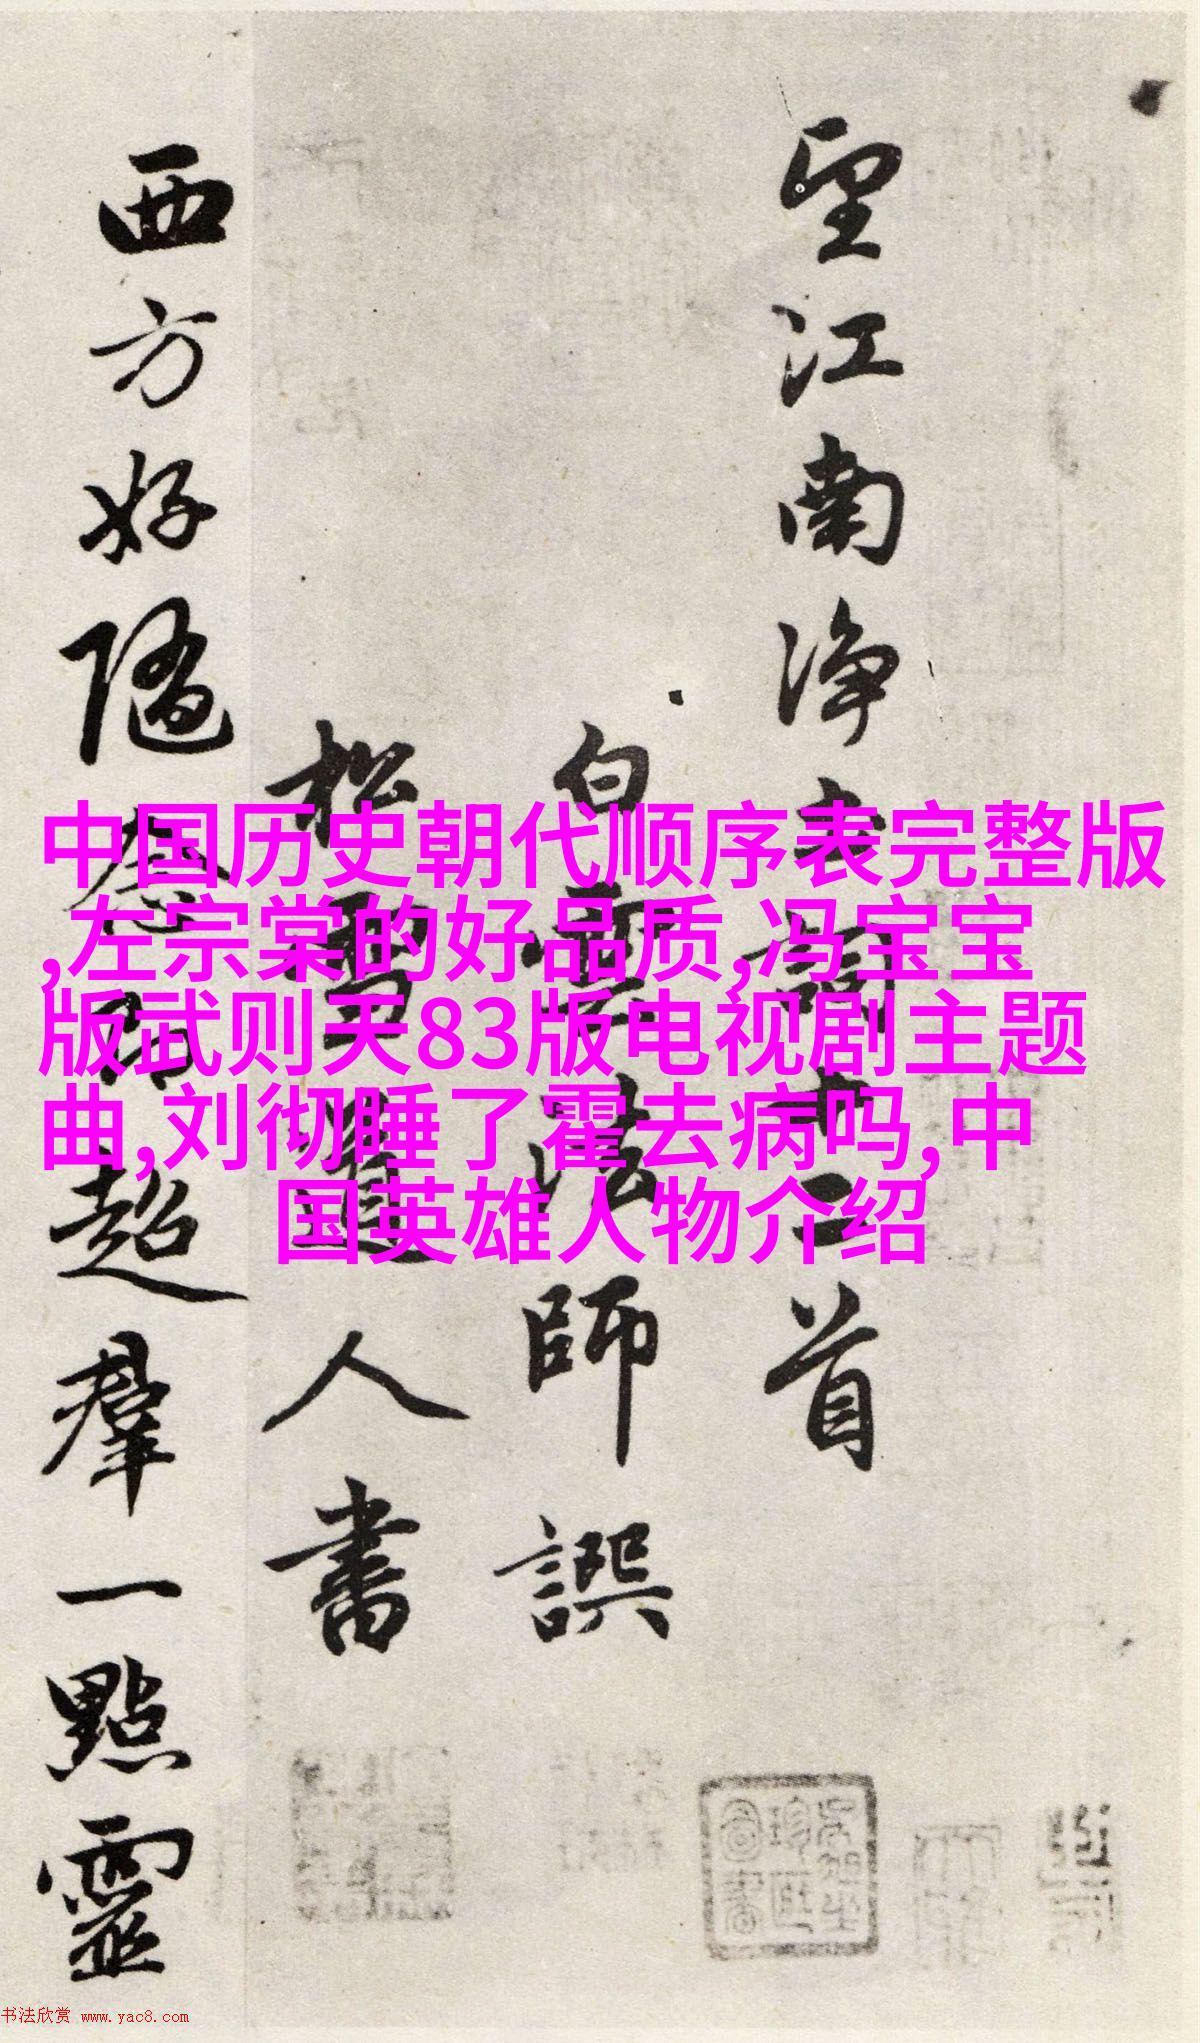 望江南淨土詞十二首
白雲法師譔
松雪道人書
西方好隨念即超羣一點靈
中国历史朝代顺序表完整版
,左宗棠的好品质,冯宝宝
版武则天83版电视剧主题
曲,刘彻睡了霍去病吗,中
国英雄人物介绍
书法欣赏 www.yac8.com